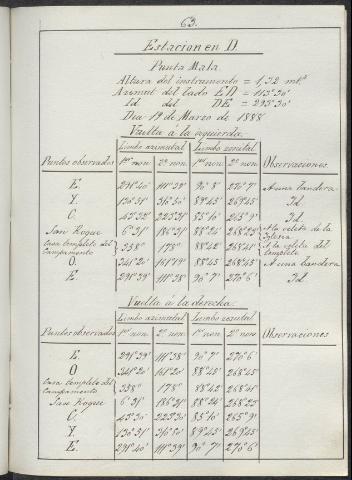 63.
Estacion en D.
Punta Mala.
Altura del instrumento = 1,32 mt.s
Azimut del lado ED = 113°30'
Id del DE = 293°30'
Dia 19 de Marzo de 1888
Vuelta á la izquierda.
Limbo azimutal Limbo cenital
Puntos observados 1er non 2º non 1er non 2º non Observaciones
E. 291°40' 111°39' 90°8' 270°7' A una bandera
Y. 130°31' 89°45' 269°45' Id.
C. 85°16' 265°9' Id.
San Roque 6°31' 186°31' 88°24' 268°25' A la veleta de la Iglesia
Casa templete del Campamento 358° 178° 88°42' 268°41' A la veleta del templete
O 341°20' 88°45' 268°45' A una bandera
E. 291°39' 111°38' 90°7' 270°6' Id
Vuelta á la derecha.
Limbo azimutal Limbo cenital
Puntos observados 1er non 2º non 1er non 2º non Observaciones
E. 291°39' 111°38' 90°7' 270°6'
O 341°20' 161°20' 88°45' 268°45'
Casa templete del Campamento 358° 178° 88°42' 268°41'
San Roque 6°31' 186°31' 88°24' 268°25'
C. 43°30' 223°30' 85°16' 265°9'
Y. 130°31' 89°45' 269°45'
E. 291°40' 111°39' 90°7' 270°6'